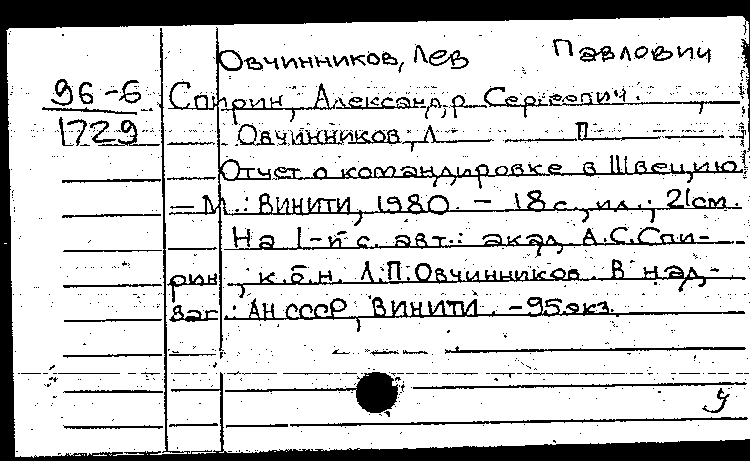 Овчинников, Лев Павлович
96-6 Спирин, Александр Сергеевич.
1729 Овчинников, Л П
Отчет о командировке в Швецию.
— М.: ВИНИТИ, 1980. — 18 с., ил.; 21 см.
На 1-й с. авт.: акад. А.С. Спи-
рин, к.б.н. Л.П. Овчинников. В над-
заг.: АН СССР, ВИНИТИ. — 95 экз.
у